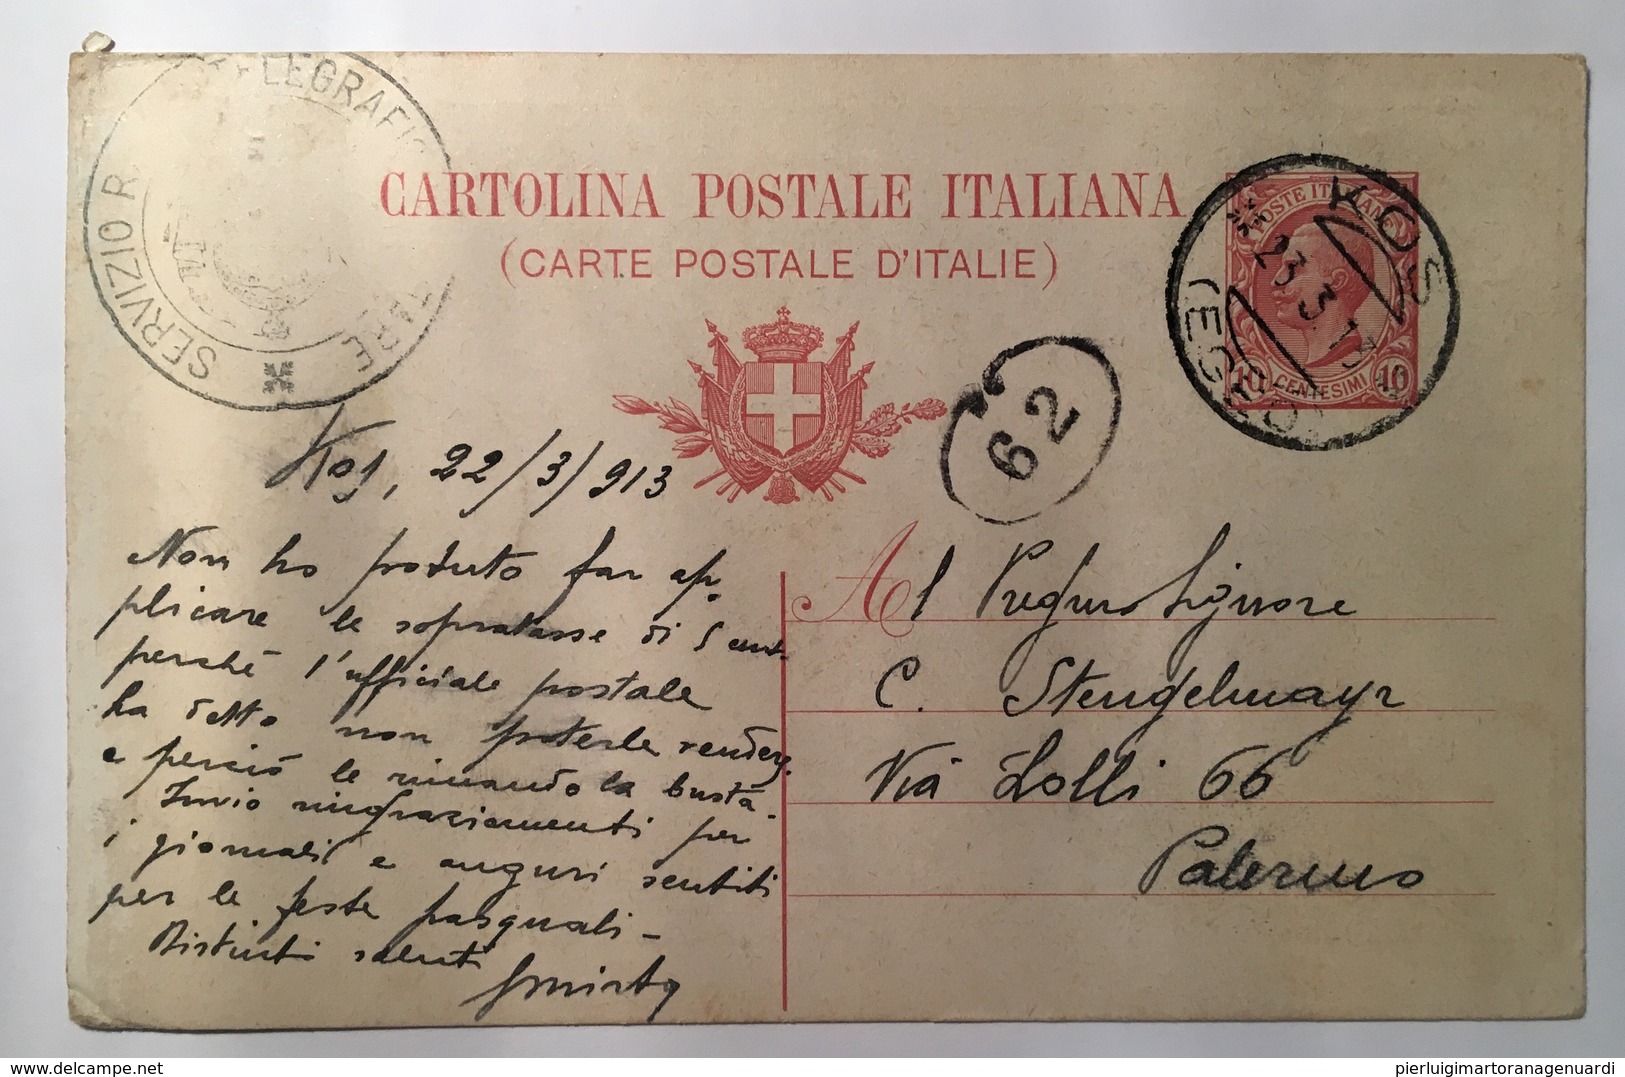 SERVIZIO R
TELEGRAFIC
TARE
CARTOLINA POSTALE ITALIANA
(CARTE POSTALE D'ITALIE)
POSTE ITALIANE
10 CENTESIMI 10
KOS
23.3.13
(EGEO)
62
Kos, 22/3/913
Non ho potuto far ap-
plicare le sopratasse di 5 cent.
perché l'ufficiale postale
ha detto non poterle render,
e perciò le rimando la busta.
Invio ringraziamenti per
i giornali e auguri sentiti
per le feste pasquali -
Distinti saluti
Al Pregmo Signore
C. Stengelmayr
Via Lolli 66
Palermo
www.delcampe.net
pierluigimartoranagenuardi